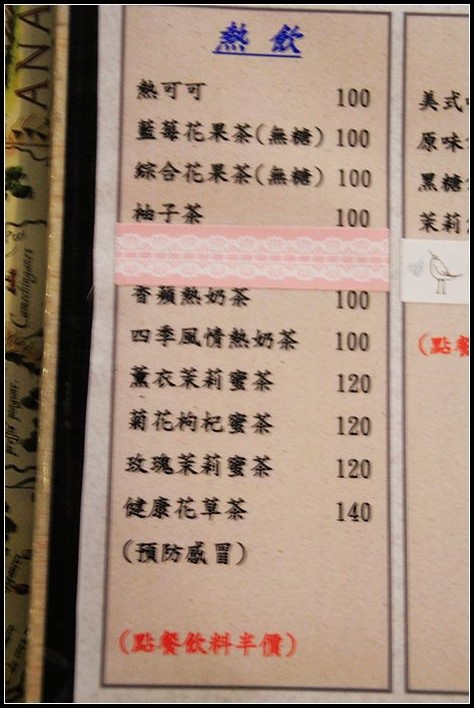 熱飲
熱可可 100
藍莓花果茶(無糖) 100
綜合花果茶(無糖) 100
柚子茶 100
香蘋熱奶茶 100
四季風情熱奶茶 100
薰衣茉莉蜜茶 120
菊花枸杞蜜茶 120
玫瑰茉莉蜜茶 120
健康花草茶 140
(預防感冒)
(點餐飲料半價)
美式
原味
黑糖
茉莉
(點餐
ANA